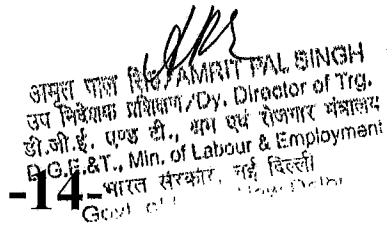 अमृत पाल सिंह/AMRIT PAL SINGH
उप निदेशक प्रशिक्षण/Dy. Director of Trg.
डी.जी.ई. एण्ड टी., श्रम एवं रोजगार मंत्रालय
D.G.E.&T., Min. of Labour & Employment
भारत सरकार, नई दिल्ली
-14-
Govt. of New Delhi